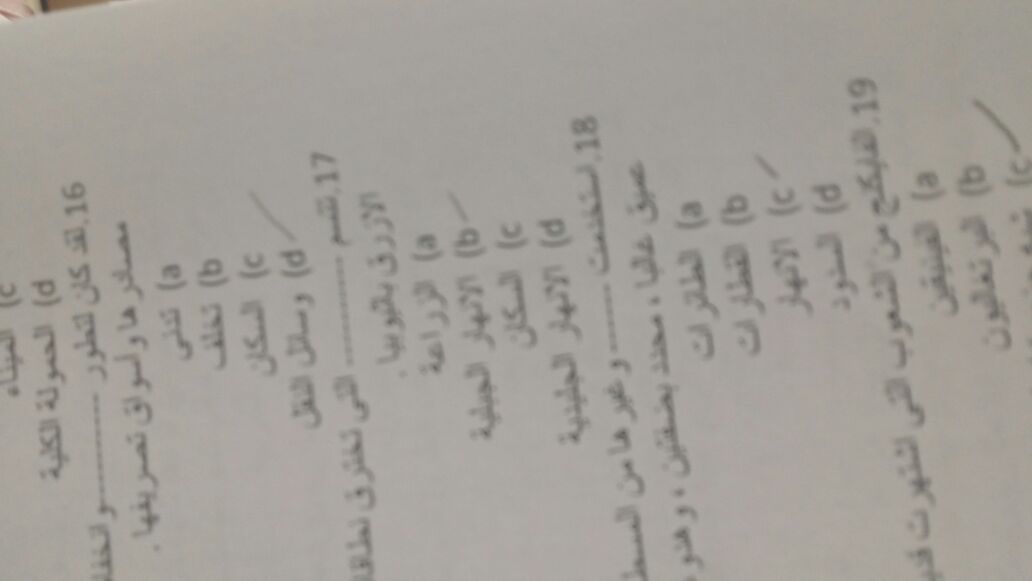 c) الميناء
d) الحمولة الكلية
16. لقد كان لتطور ---------- و
مصادرها وأسواق تصريفها .
a) تدنى
b) تخلف
c) السكان
d) وسائل النقل
17. تتسم ---------- التى تخترق نطاقا
الأزرق بأثيوبيا .
a) الزراعة
b) الأنهار الجبلية
c) السكان
d) الأنهار الجليدية
18. استخدمت ---------- وغيرها من المسط
عميق غالبا ، محدد بضفتين ،
a) الطائرات
b) القطارات
c) الأنهار
d) السدود
19. من الشعوب التى اشتهرت
a) الفينيقين
b) البرتغاليون
c)